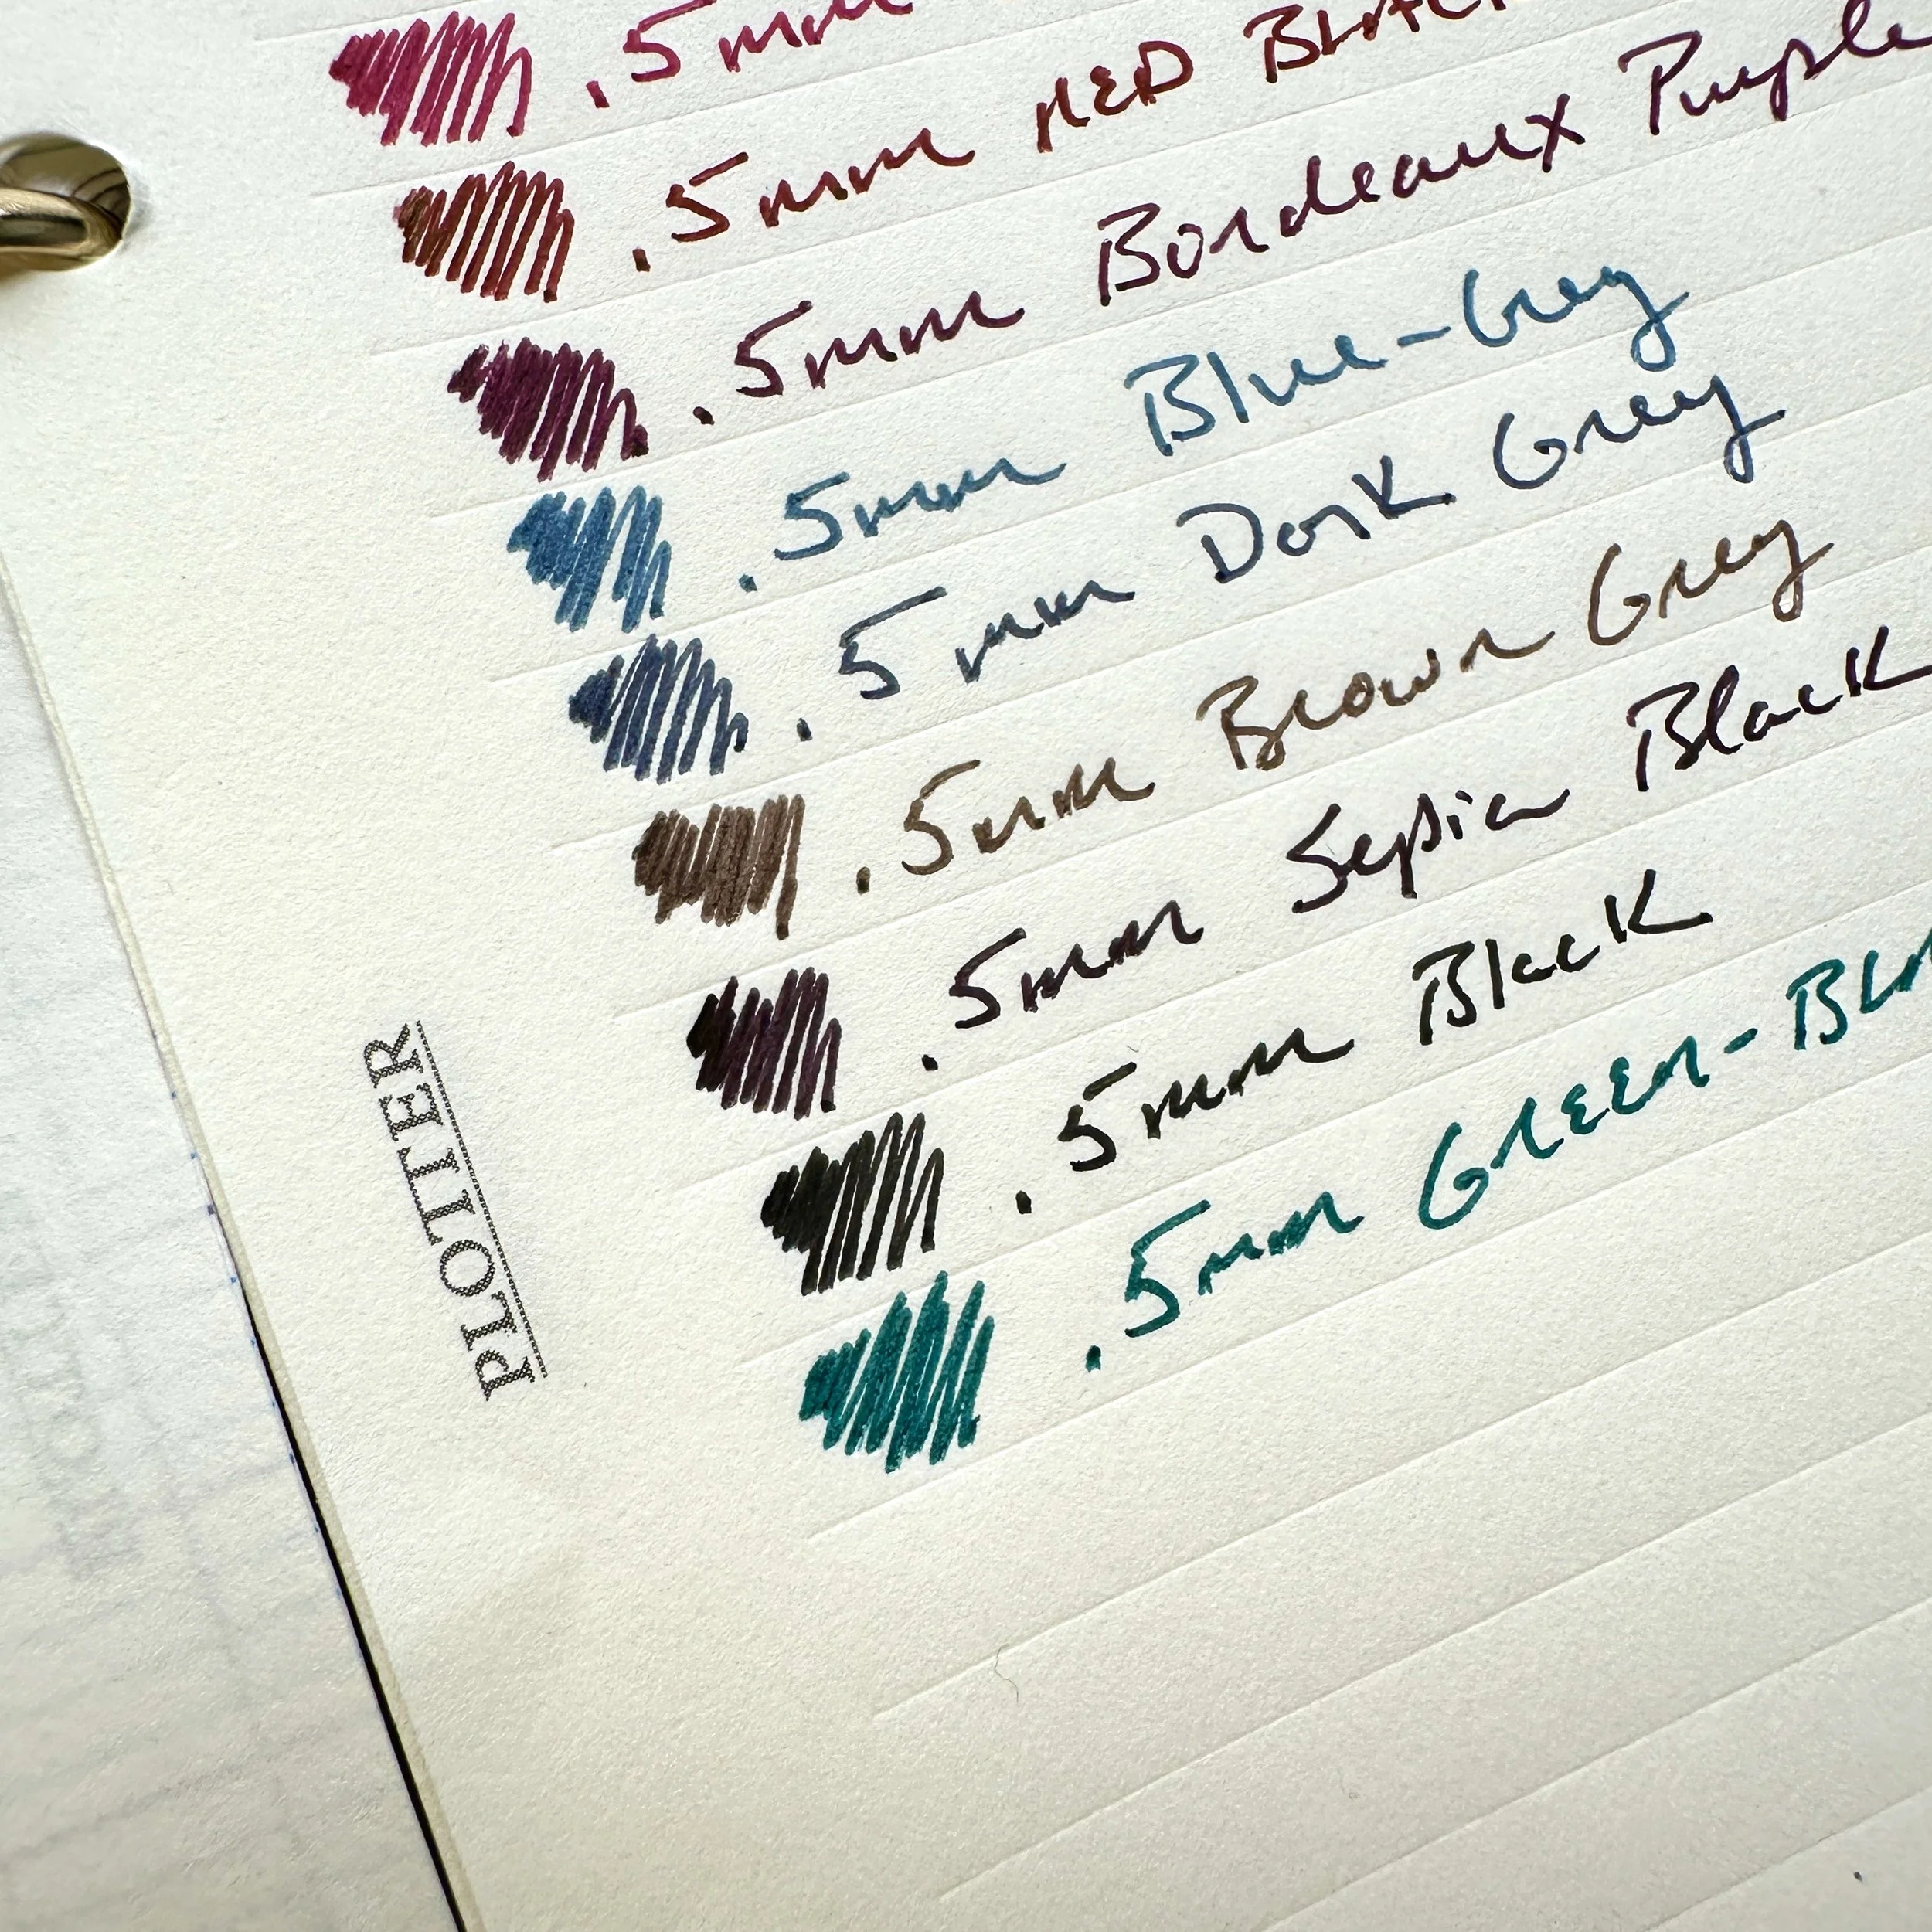 .5mm
.5mm RED
.5mm Bordeaux Purple
.5mm Blue-Grey
.5mm Dark Grey
.5mm Brown Grey
.5mm Sepia Black
.5mm Black
.5mm GREEN-
PLOTTER